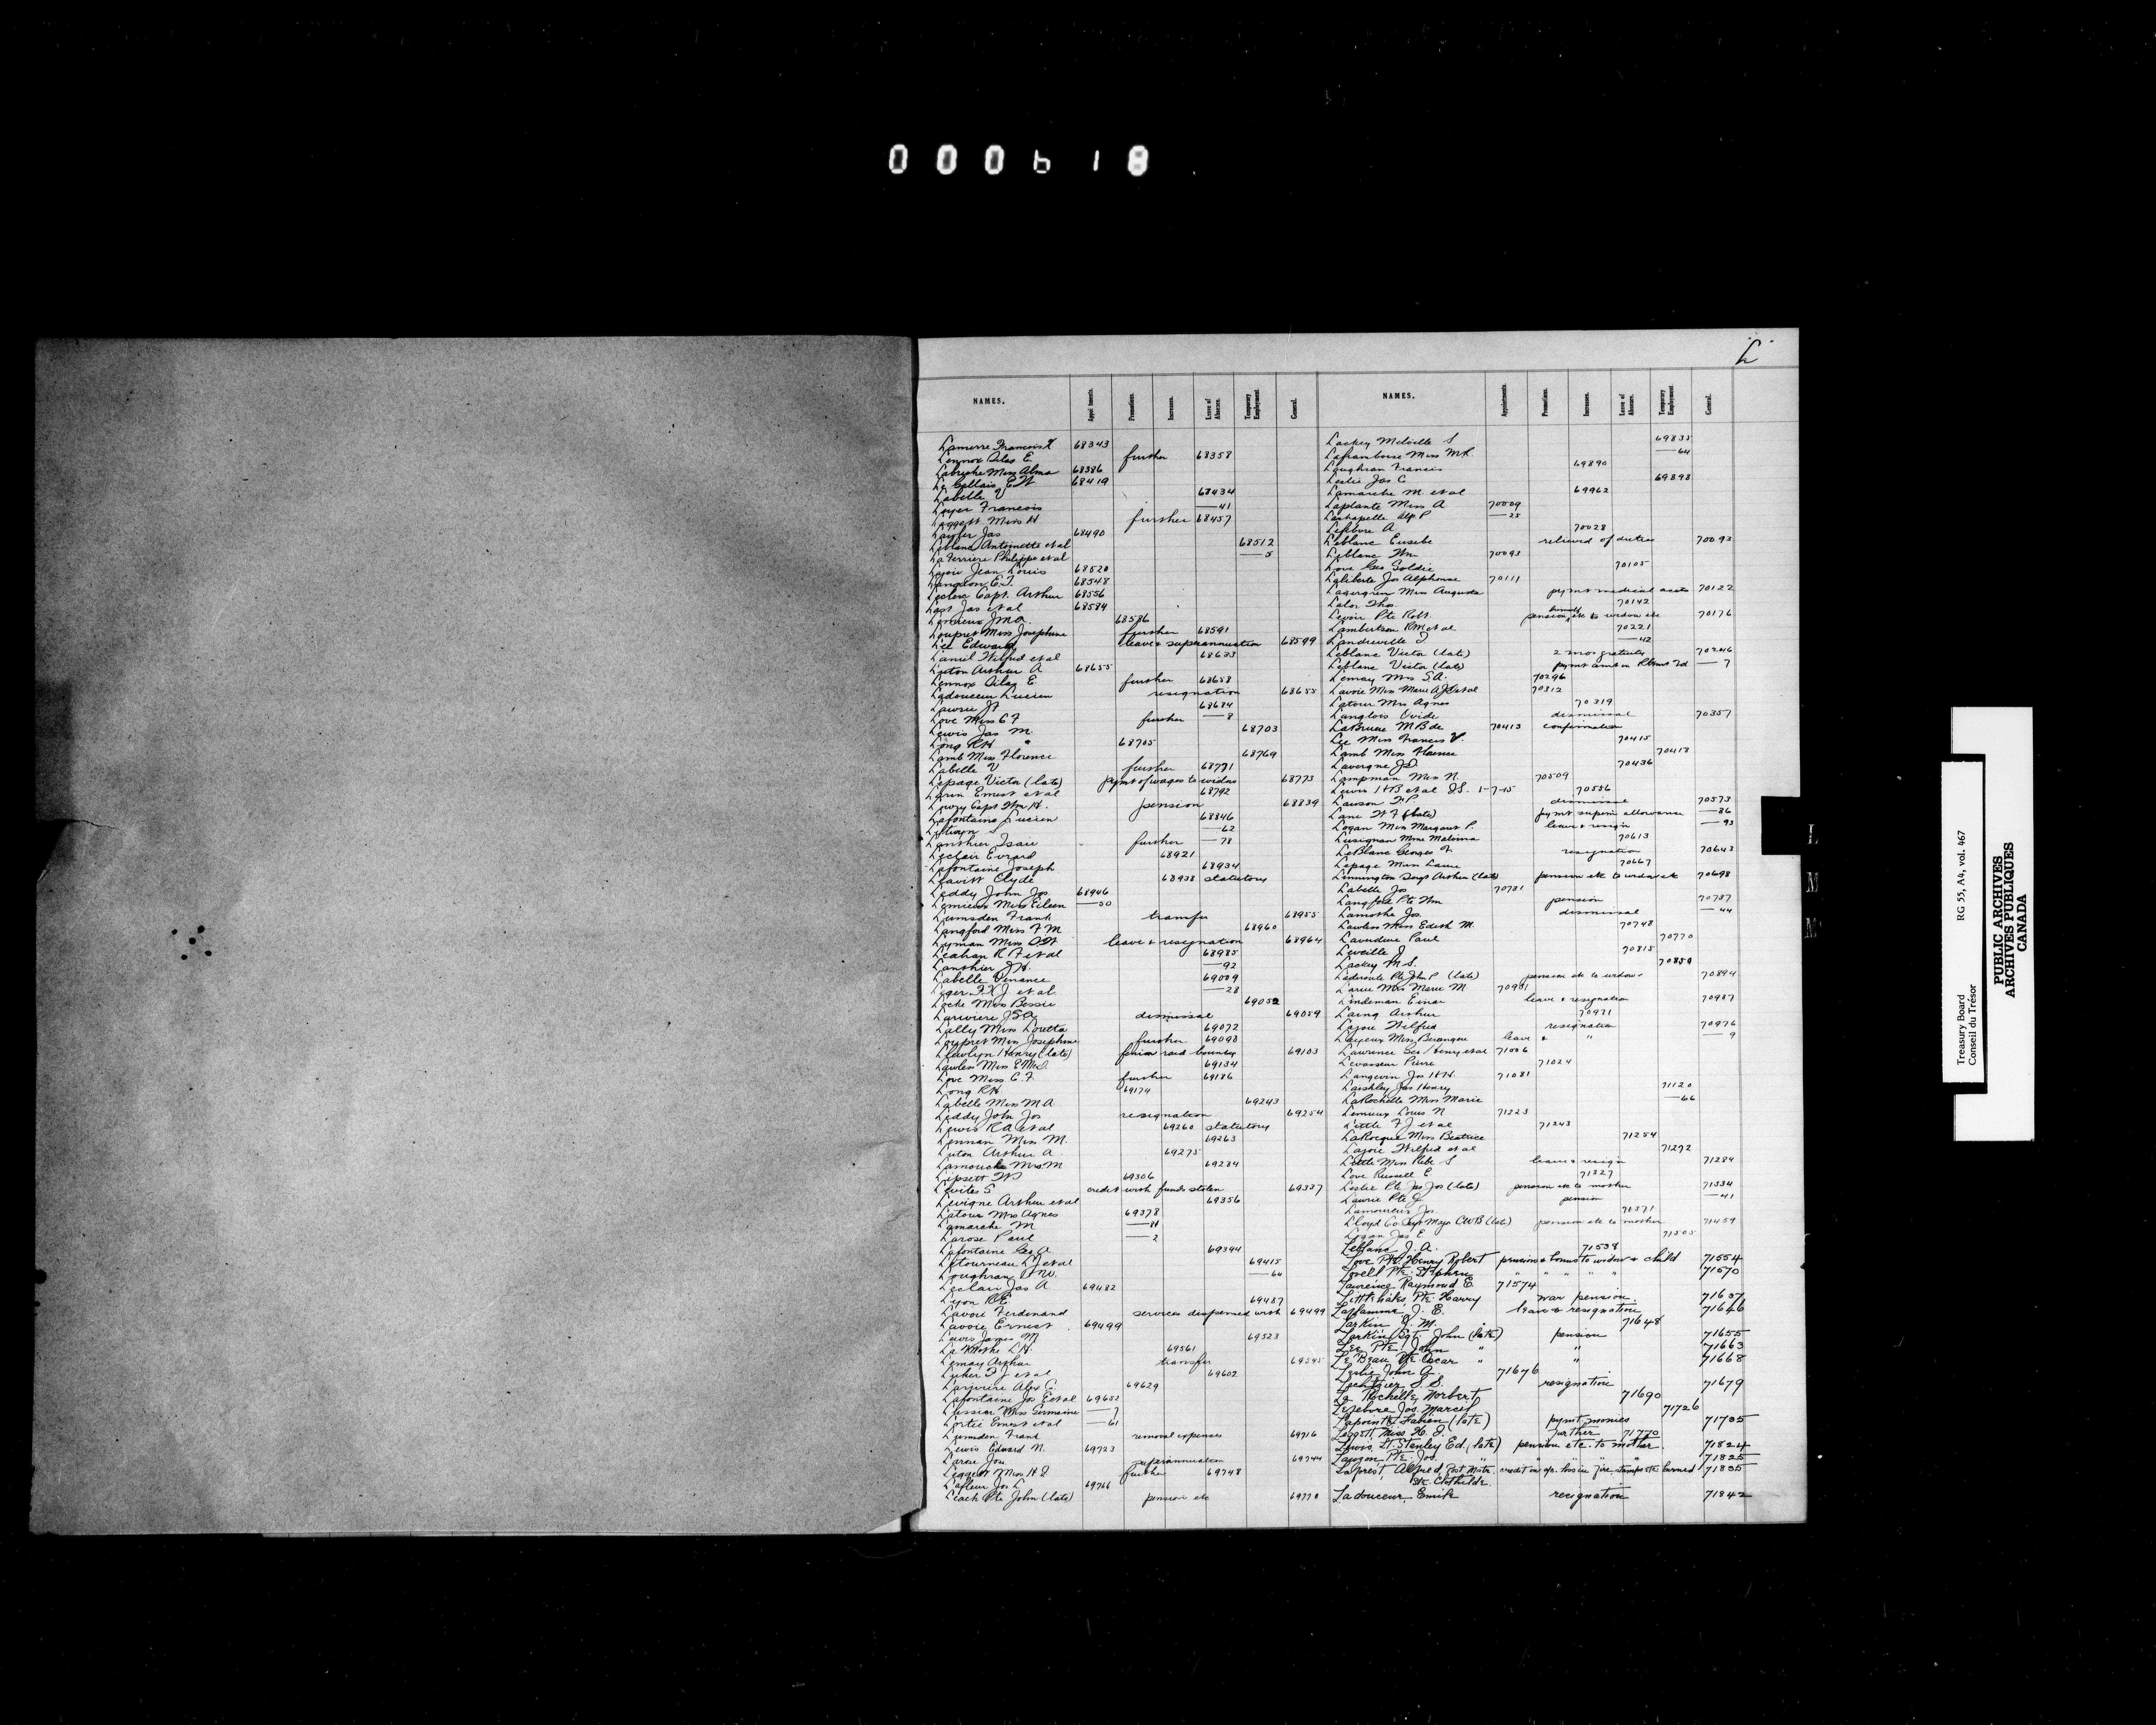 000618
L
NAMES. Appointments. Promotions. Increases. Leave of Absence. Temporary Employment. General.
Lamerre Francois X 68343
Lennox Silas E further 68358
Labreche Miss Alma 68386
Le Gallais E W 68419
Labelle V 68434
Loyer Francois —41
Leggett Miss H further 68457
Lawler Jas 68490
Leblanc Antoinette et al 68512
La Ferriere Philippe et al —5
Lajoie Jean Louis 68520
Langdon E. J. 68548
Leclerc Capt. Arthur 68556
Last Jas et al 68584
Lemieux J M A 68586
Loupret Miss Josephine further 68591
Lee Edward leave & superannuation 68599
Laniel Wilfred et al 68633
Luton Arthur A 68655
Lennox Silas E further 68658
Ladouceur Lucien resignation 68655
Lawrie J F 68684
Love Miss C F further —8
Lewis Jas M. 68703
Long R H 68705
Lamb Miss Florence 68769
Labelle V further 68771
Lepage Victor (late) paymt of wages to widow 68773
Larin Ernest et al 68792
Lowry Capt. Wm H. pension 68839
Lafontaine Lucien 68846
—62
Lanthier Isaie further —78
Leclair Evrard 68921
Lafontaine Joseph 68934
Leavitt Clyde 68938 statutory
Leddy John Jos 68946
Lemieux Miss Eileen —50
Lumsden Frank transfer 68955
Langford Miss F M 68960
Lyman Miss O W leave & resignation 68964
Leahan R F et al 68985
Lanthier J H. —92
Labelle Venance 69009
Leger F X J et al —28
Locke Miss Bessie 69052
Lariviere J S A dismissal 69059
Lally Miss Loretta 69072
Loupret Miss Josephine further 69098
Llewlyn Henry (late) fenian raid bounty 69103
Lawless Miss E M J 69134
Love Miss C. F. further 69186
Long R H 69174
Labelle Miss M A 69243
Leddy John Jos resignation 69254
Lewis R A et al 69260 statutory
Lennan Miss M. 69263
Luton Arthur A 69275
Lamouche Mrs M 69284
Lipsett W J 69306
Levites S credit with funds stolen 69337
Levigne Arthur et al 69356
Latour Mrs Agnes 69378
Lamarche M —81
Larose Paul —2
Lafontaine Geo A 69394
Letourneau L J et al 69415
Loughran J W. —64
Leclair Jas A 69482
Lyon R E 69487
Lavoie Ferdinand services dispensed with 69499
Lavoie Ernest 69499
Lewis James M 69523
La Mothe L H. 69561
Lemay Arthur transfer 69595
Lusher F J et al 69602
Lariviere Alex C. 69629
Lafontaine Jos E et al 69652
Lussier Miss Germaine —7
Lortie Ernest et al —61
Lumsden Frank removal expenses 69716
Lewis Edward N. 69723
Larose Jos superannuation 69744
Leggett Miss H J further 69748
Lafleur Jos L 69766
Leach Pte John (late) pension etc 69770
NAMES. Appointments. Promotions. Increases. Leave of Absence. Temporary Employment. General.
Lackey Melville S 69835
Laframboise Miss M R —64
Loughran Francis 69890
Leslie Jas C 69898
Lamarche M. et al 69962
Laplante Miss A 70009
Lachapelle Alp P —25
Lefebvre A 70028
Leblanc Eusebe relieved of duties 70093
Leblanc Wm 70093
Love Geo Goldie 70105
Laliberte Jos Alphonse 70111
Lagergren Miss Augusta paymt medical accts 70122
Lalor Thos. 70142
Levoir Pte Robt. pension himself etc to widow etc 70176
Lambertson R M et al 70221
Landreville J —42
Leblanc Victor (late) 2 mos gratuity 70246
Leblanc Victor (late) paymt amt in Retmt Fd —7
Lemay Mrs S. A. 70296
Lavoie Miss Marie A J et al 70312
Latour Mrs Agnes 70319
Langlois Ovide dismissal 70357
LaBruere M B de 70413 confirmation
Lee Miss Frances V 70415
Lamb Miss Florence 70418
Lavergne J D. 70436
Lampman Miss N. 70509
Lewis H B et al I.S. 1-7-15 70556
Lawson F P dismissal 70573
Lane W F (late) paymt superin allowance —86
Logan Miss Margaret P. leave & resign —93
Lusignan Mme Malvina 70613
LeBlanc Georges H resignation 70643
Lepage Miss Laure 70667
Linnington Sergt Arthur (late) pension etc to widow etc 70698
Labelle Jos 70731
Langford Pte Wm pension 70737
Lamothe Jos. dismissal —44
Lawless Miss Edith M. 70748
Laverdure Paul 70770
Leveille J 70815
Lackey M S. 70850
Laderoute Pte John P (late) pension etc to widow 70894
Larue Mrs Marie M 70931
Lindeman Einar leave & resignation 70987
Laing Arthur 70971
Lajoie Wilfred resignation 70976
Layeux Miss Berangere leave & " —9
Lawrence Geo Henry et al 71006
Levasseur Pierre 71024
Langevin Jos H H. 71081
Laishley Jas Henry 71120
LaRochelle Miss Marie —66
Lemieux Louis N 71223
Little F J et al 71243
LaRocque Miss Beatrice 71254
Lajoie Wilfred et al 71272
Little Miss Ruby S leave & resign 71284
Love Russell E 71327
Leslie Pte Jas Jos (late) pension etc to mother 71334
Lawrie Pte G pension —41
Lamoureux Jos. 71371
Lloyd Co Sergt Major C W B (late) pension etc to mother 71459
Logan Jas E 71505
Leblanc J. A. 71538
Love Pte. Henry Robert pension & bonus to widow & child 71554
Lovell Pte. Stephen " " " " " 71570
Laurence Raymond E. 71574
Littlehales, Pte. Harry war pension. 71637
Laflamme, J. E. leave & resignation 71646
Larkin J. M. 71648
Larkin Sgt. John (late) pension 71655
Lee Pte. John " " 71663
Le Beau Pte. Oscar " " 71668
Leslie John A. 71676
Lechtzier S. S. resignation 71679
La Rochelle, Norbert 71690
Lefebvre Jos. Marcel 71726
Lapointe Fabien (late) paymt monies 71735
Leggett, Miss H. J. further 71770
Lewis, Lt. Stanley Ed. (late) pension etc. to mother. 71824
Lauzon Pte. Jos. " " " " " 71825
Laprest Alfred, Post Mstr. credit on a/c. loss in fire, stamps etc burned 71835
Ste. Clothilde
Ladouceur, Emile resignation 71842
L
M
Mc
Treasury Board RG 55, A4, vol. 467
Conseil du Trésor
PUBLIC ARCHIVES
ARCHIVES PUBLIQUES
CANADA